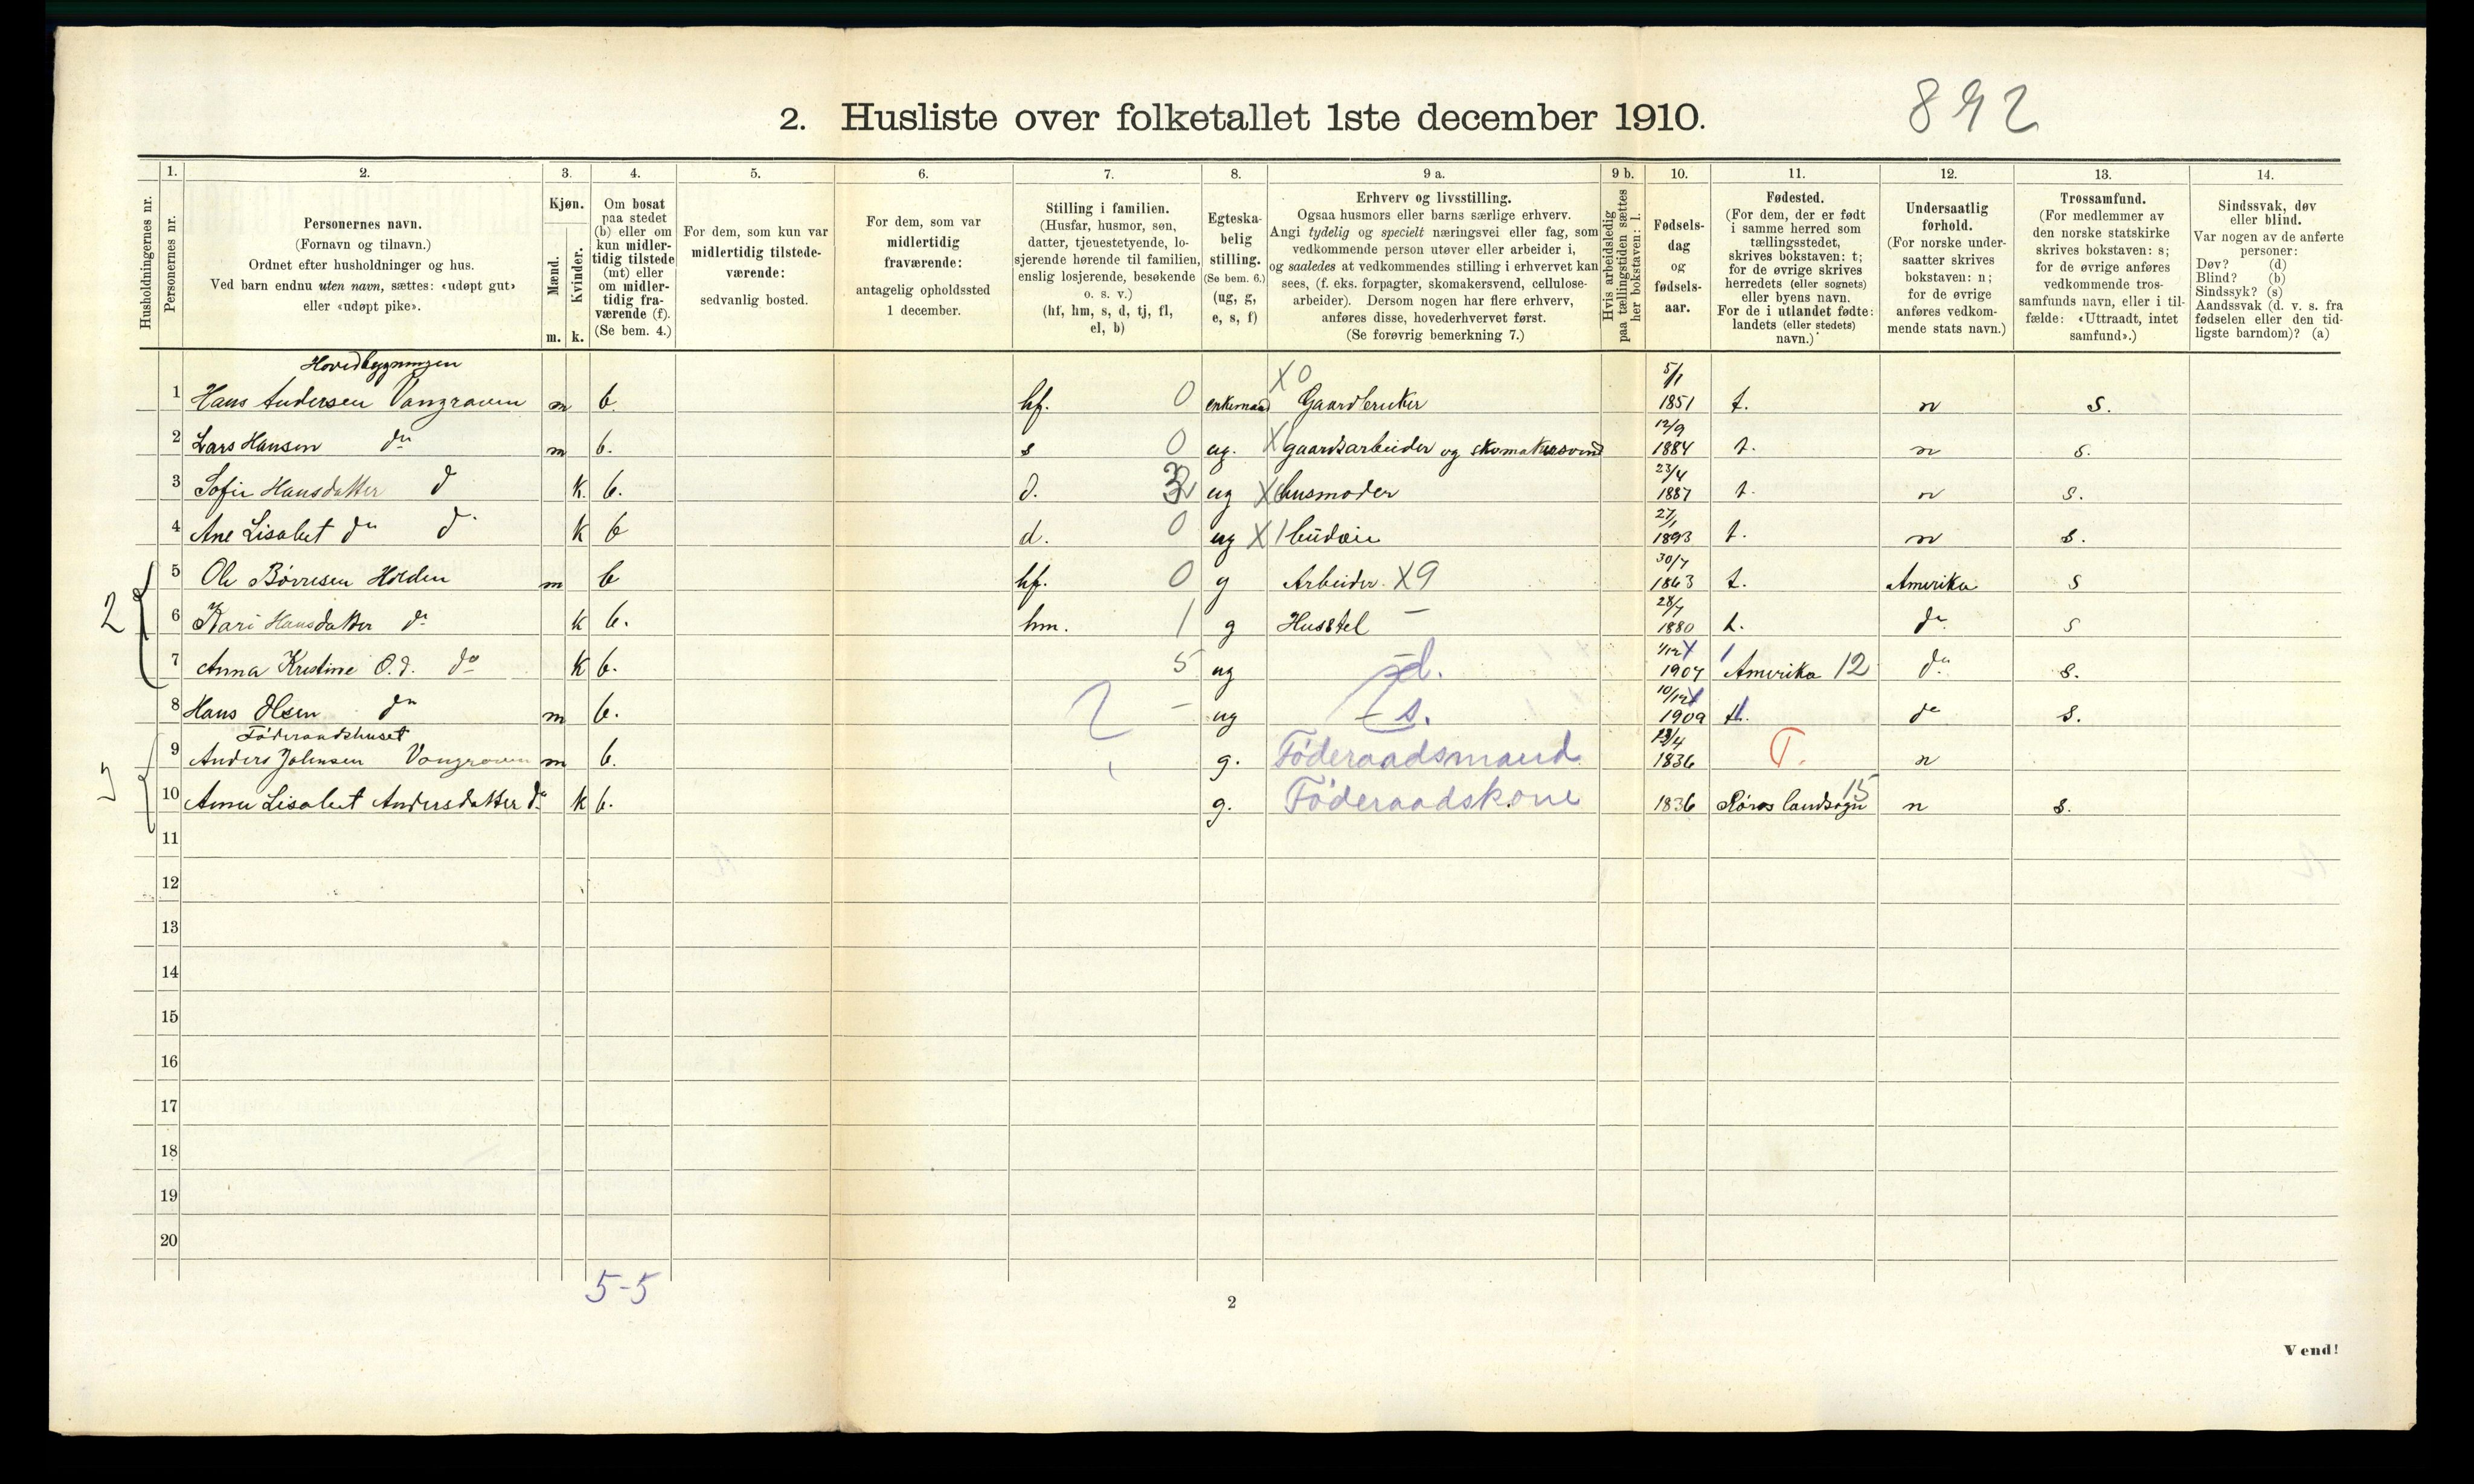 2. Husliste over folketallet 1ste december 1910.
892
Husholdningernes nr.
1.
Personernes nr.
2.
Personernes navn.
(Fornavn og tilnavn.)
Ordnet efter husholdninger og hus.
Ved barn endnu uten navn, sættes: «udøpt gut»
eller «udøpt pike».
3.
Kjøn.
Mænd.
Kvinder.
m. k.
4.
Om bosat
paa stedet
(b) eller om
kun midler-
tidig tilstede
(mt) eller
om midler-
tidig fra-
værende (f).
(Se bem. 4.)
5.
For dem, som kun var
midlertidig tilstede-
værende:
sedvanlig bosted.
6.
For dem, som var
midlertidig
fraværende:
antagelig opholdssted
1 december.
7.
Stilling i familien.
(Husfar, husmor, søn,
datter, tjenestetyende, lo-
sjerende hørende til familien,
enslig losjerende, besøkende
o. s. v.)
(hf, hm, s, d, tj, fl,
el, b)
8.
Egteska-
belig
stilling.
(Se bem. 6.)
(ug, g,
e, s, f)
9 a.
Erhverv og livsstilling.
Ogsaa husmors eller barns særlige erhverv.
Angi tydelig og specielt næringsvei eller fag, som
vedkommende person utøver eller arbeider i,
og saaledes at vedkommendes stilling i erhvervet kan
sees, (f. eks. forpagter, skomakersvend, cellulose-
arbeider). Dersom nogen har flere erhverv,
anføres disse, hovederhvervet først.
(Se forøvrig bemerkning 7.)
9 b.
Hvis arbeidsledig
paa tællingstiden sættes
her bokstaven: l.
10.
Fødsels-
dag
og
fødsels-
aar.
11.
Fødested.
(For dem, der er født
i samme herred som
tællingsstedet,
skrives bokstaven: t;
for de øvrige skrives
herredets (eller sognets)
eller byens navn.
For de i utlandet fødte:
landets (eller stedets)
navn.)
12.
Undersaatlig
forhold.
(For norske under-
saatter skrives
bokstaven: n;
for de øvrige
anføres vedkom-
mende stats navn.)
13.
Trossamfund.
(For medlemmer av
den norske statskirke
skrives bokstaven: s;
for de øvrige anføres
vedkommende tros-
samfunds navn, eller i til-
fælde: «Uttraadt, intet
samfund».)
14.
Sindssvak, døv
eller blind.
Var nogen av de anførte
personer:
Døv? (d)
Blind? (b)
Sindssyk? (s)
Aandssvak (d. v. s. fra
fødselen eller den tid-
ligste barndom)? (a)
Hovedbygningen
1 Hans Andersen Vangraven m b. hf. 0 enkemand X0 Gaardbruker 5/1 1851 t. n s.
2 Lars Hansen do m b. s 0 ug. X gaardsarbeider og skomakersvend 12/9 1884 t. n s.
3 Sofie Hansdatter d k. b. d. 3 ug X husmoder 23/4 1887 t. n s.
4 Ane Lisabet do d k b d. 0 ug X1 budeie 27/1 1893 t. n s.
2
5 Ole Børresen Holden m b hf. 0 g Arbeider X9 30/7 1863 t. Amerika s
6 Kari Hansdatter do k b. hm. 1 g Husstel – 28/7 1880 t. do s
7 Anna Kristine O.d. do k b. 5 ug d. 1/12 1907 Amerika 12 do s.
8 Hans Olsen do m b. – ug – s. 10/12 1909 t. do s.
Föderaadshuset
9 Anders Johnsen Vongraven m b. g. Föderaadsmand 23/4 1836 T. n
10 Anne Lisabet Andersdatter do k b. g. Föderaadskone 1836 Røros landsogn 15 n s.
11
12
13
14
15
16
17
18
19
20
5-5
2
Vend!